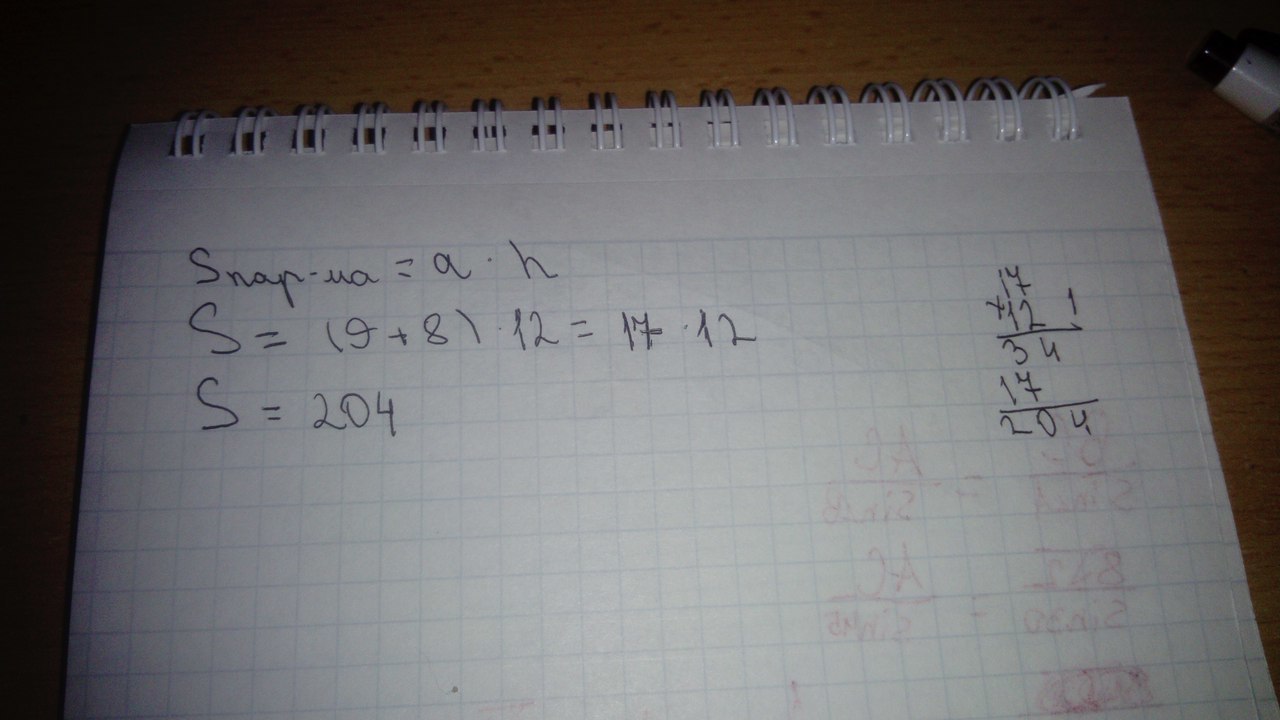 Sпар-ма = a · h
S = (9 + 8) · 12 = 17 · 12
S = 204
17
12 1
34
17
204